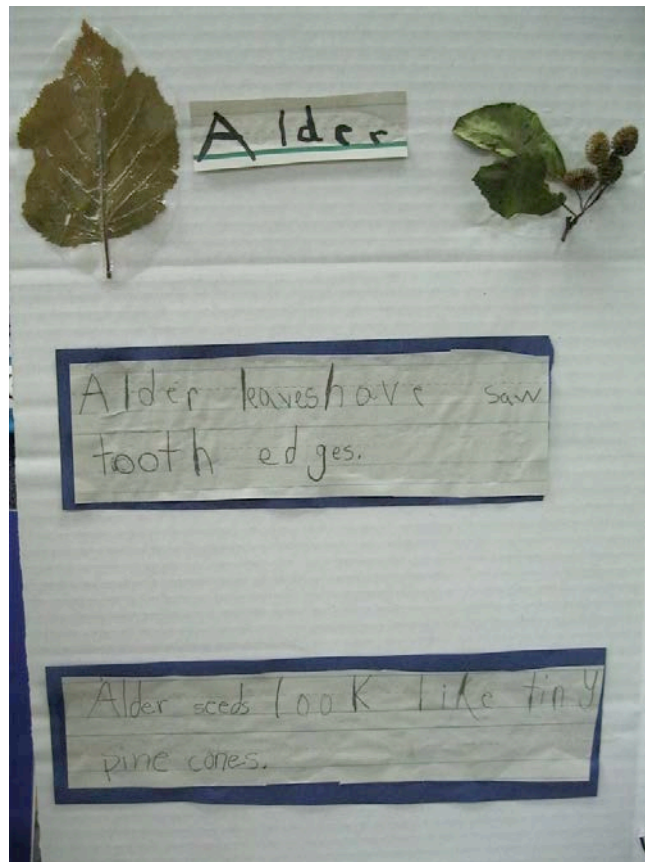 Alder
Alder leaves have saw
tooth edges.
Alder seeds look like tiny
pine cones.